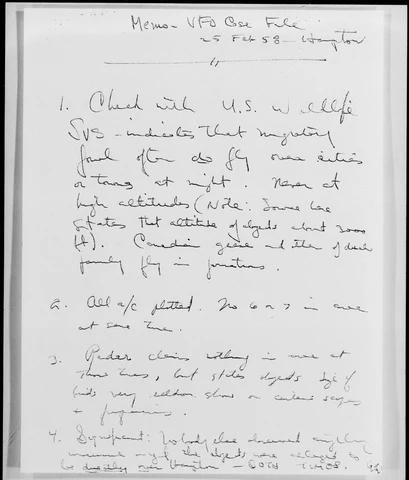 Memo - UFO Case File
25 Feb 58 - Houston
1. Check with U.S. Wildlife
Svs - indicates that migratory
fowl often do fly over cities
or towns at night. Never at
high altitudes (Note: Source
states that altitude of objects about 3000
ft). Canadian geese and other of duck
family fly in formations.
2. All a/c plotted. No 6 or 7 in area
at same time.
3. Radar claims nothing in area at
those times, but states objects size of
birds very seldom show on scopes
4. Significant: Nobody else observed anything
unusual the objects were alleged to
be directly over Houston - BOTH TIMES.